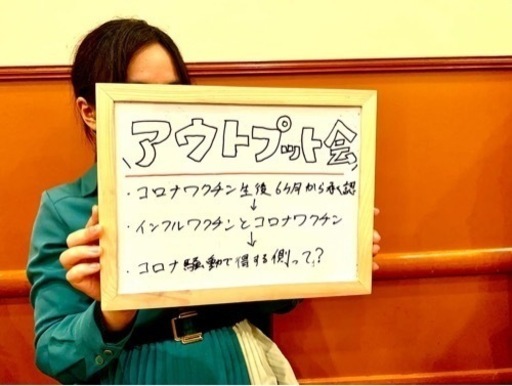 アウトプット会
・コロナワクチン生後6ヶ月から承認
↓
・インフルワクチンとコロナワクチン
↓
・コロナ騒動で得する側って？